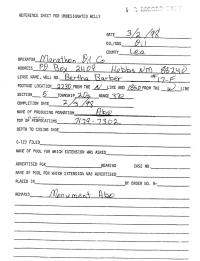 REFERENCE SHEET FOR UNDESIGNATED WELLS
DATE 3/2/98
OIL/GAS Oil
COUNTY Lea
OPERATOR Marathon Oil Co
ADDRESS PO Box 2409 Hobbs NM 88240
LEASE NAME, WELL NO. Bertha Barber #17-F
FOOTAGE LOCATION 2230 FROM THE N LINE AND 1880 FROM THE W LINE
SECTION 5 TOWNSHIP 20s RANGE 37e
COMPLETION DATE 2/3/98
NAME OF PRODUCING FORMATION Abo
TOP OF PERFORATIONS 7179-7302
DEPTH TO CASING SHOE
C-123 FILED
NAME OF POOL FOR WHICH EXTENSION WAS ASKED
ADVERTISED FOR HEARING CASE NO.
NAME OF POOL FOR WHICH EXTENSION WAS ADVERTISED
PLACED IN BY ORDER NO. R-
REMARKS Monument Abo